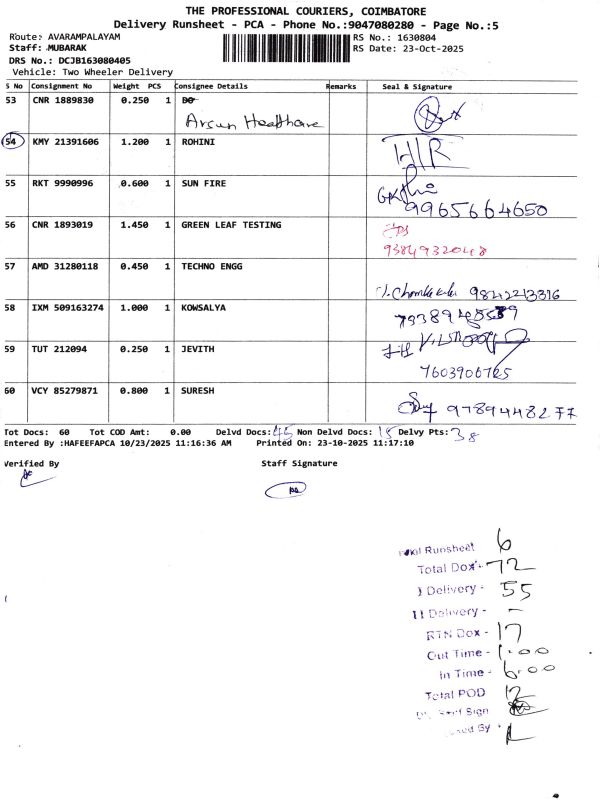 THE PROFESSIONAL COURIERS, COIMBATORE
Delivery Runsheet - PCA - Phone No.:9047080280 - Page No.:5
Route: AVARAMPALAYAM RS No.: 1630804
Staff: MUBARAK RS Date: 23-Oct-2025
DRS No.: DCJB163080405
Vehicle: Two Wheeler Delivery
S No Consignment No Weight PCS Consignee Details Remarks Seal & Signature
53 CNR 1889830 0.250 1 DO
Arsun Healthcare
54 KMY 21391606 1.200 1 ROHINI H/R
55 RKT 9990996 0.600 1 SUN FIRE
9965664650
56 CNR 1893019 1.450 1 GREEN LEAF TESTING
9384932048
57 AMD 31280118 0.450 1 TECHNO ENGG
9842213316
58 IXM 509163274 1.000 1 KOWSALYA
59 TUT 212094 0.250 1 JEVITH
7603906725
60 VCY 85279871 0.800 1 SURESH
9789448277
Tot Docs: 60 Tot COD Amt: 0.00 Delvd Docs: 45 Non Delvd Docs: 15 Delvy Pts: 38
Entered By :HAFEEFAPCA 10/23/2025 11:16:36 AM Printed On: 23-10-2025 11:17:10
Verified By Staff Signature
Runsheet 6
Total Dox - 72
I Delivery - 55
II Delivery - -
RTN Dox - 17
Out Time - 1.00
In Time - 6.00
Total POD 12
Staff Sign
By